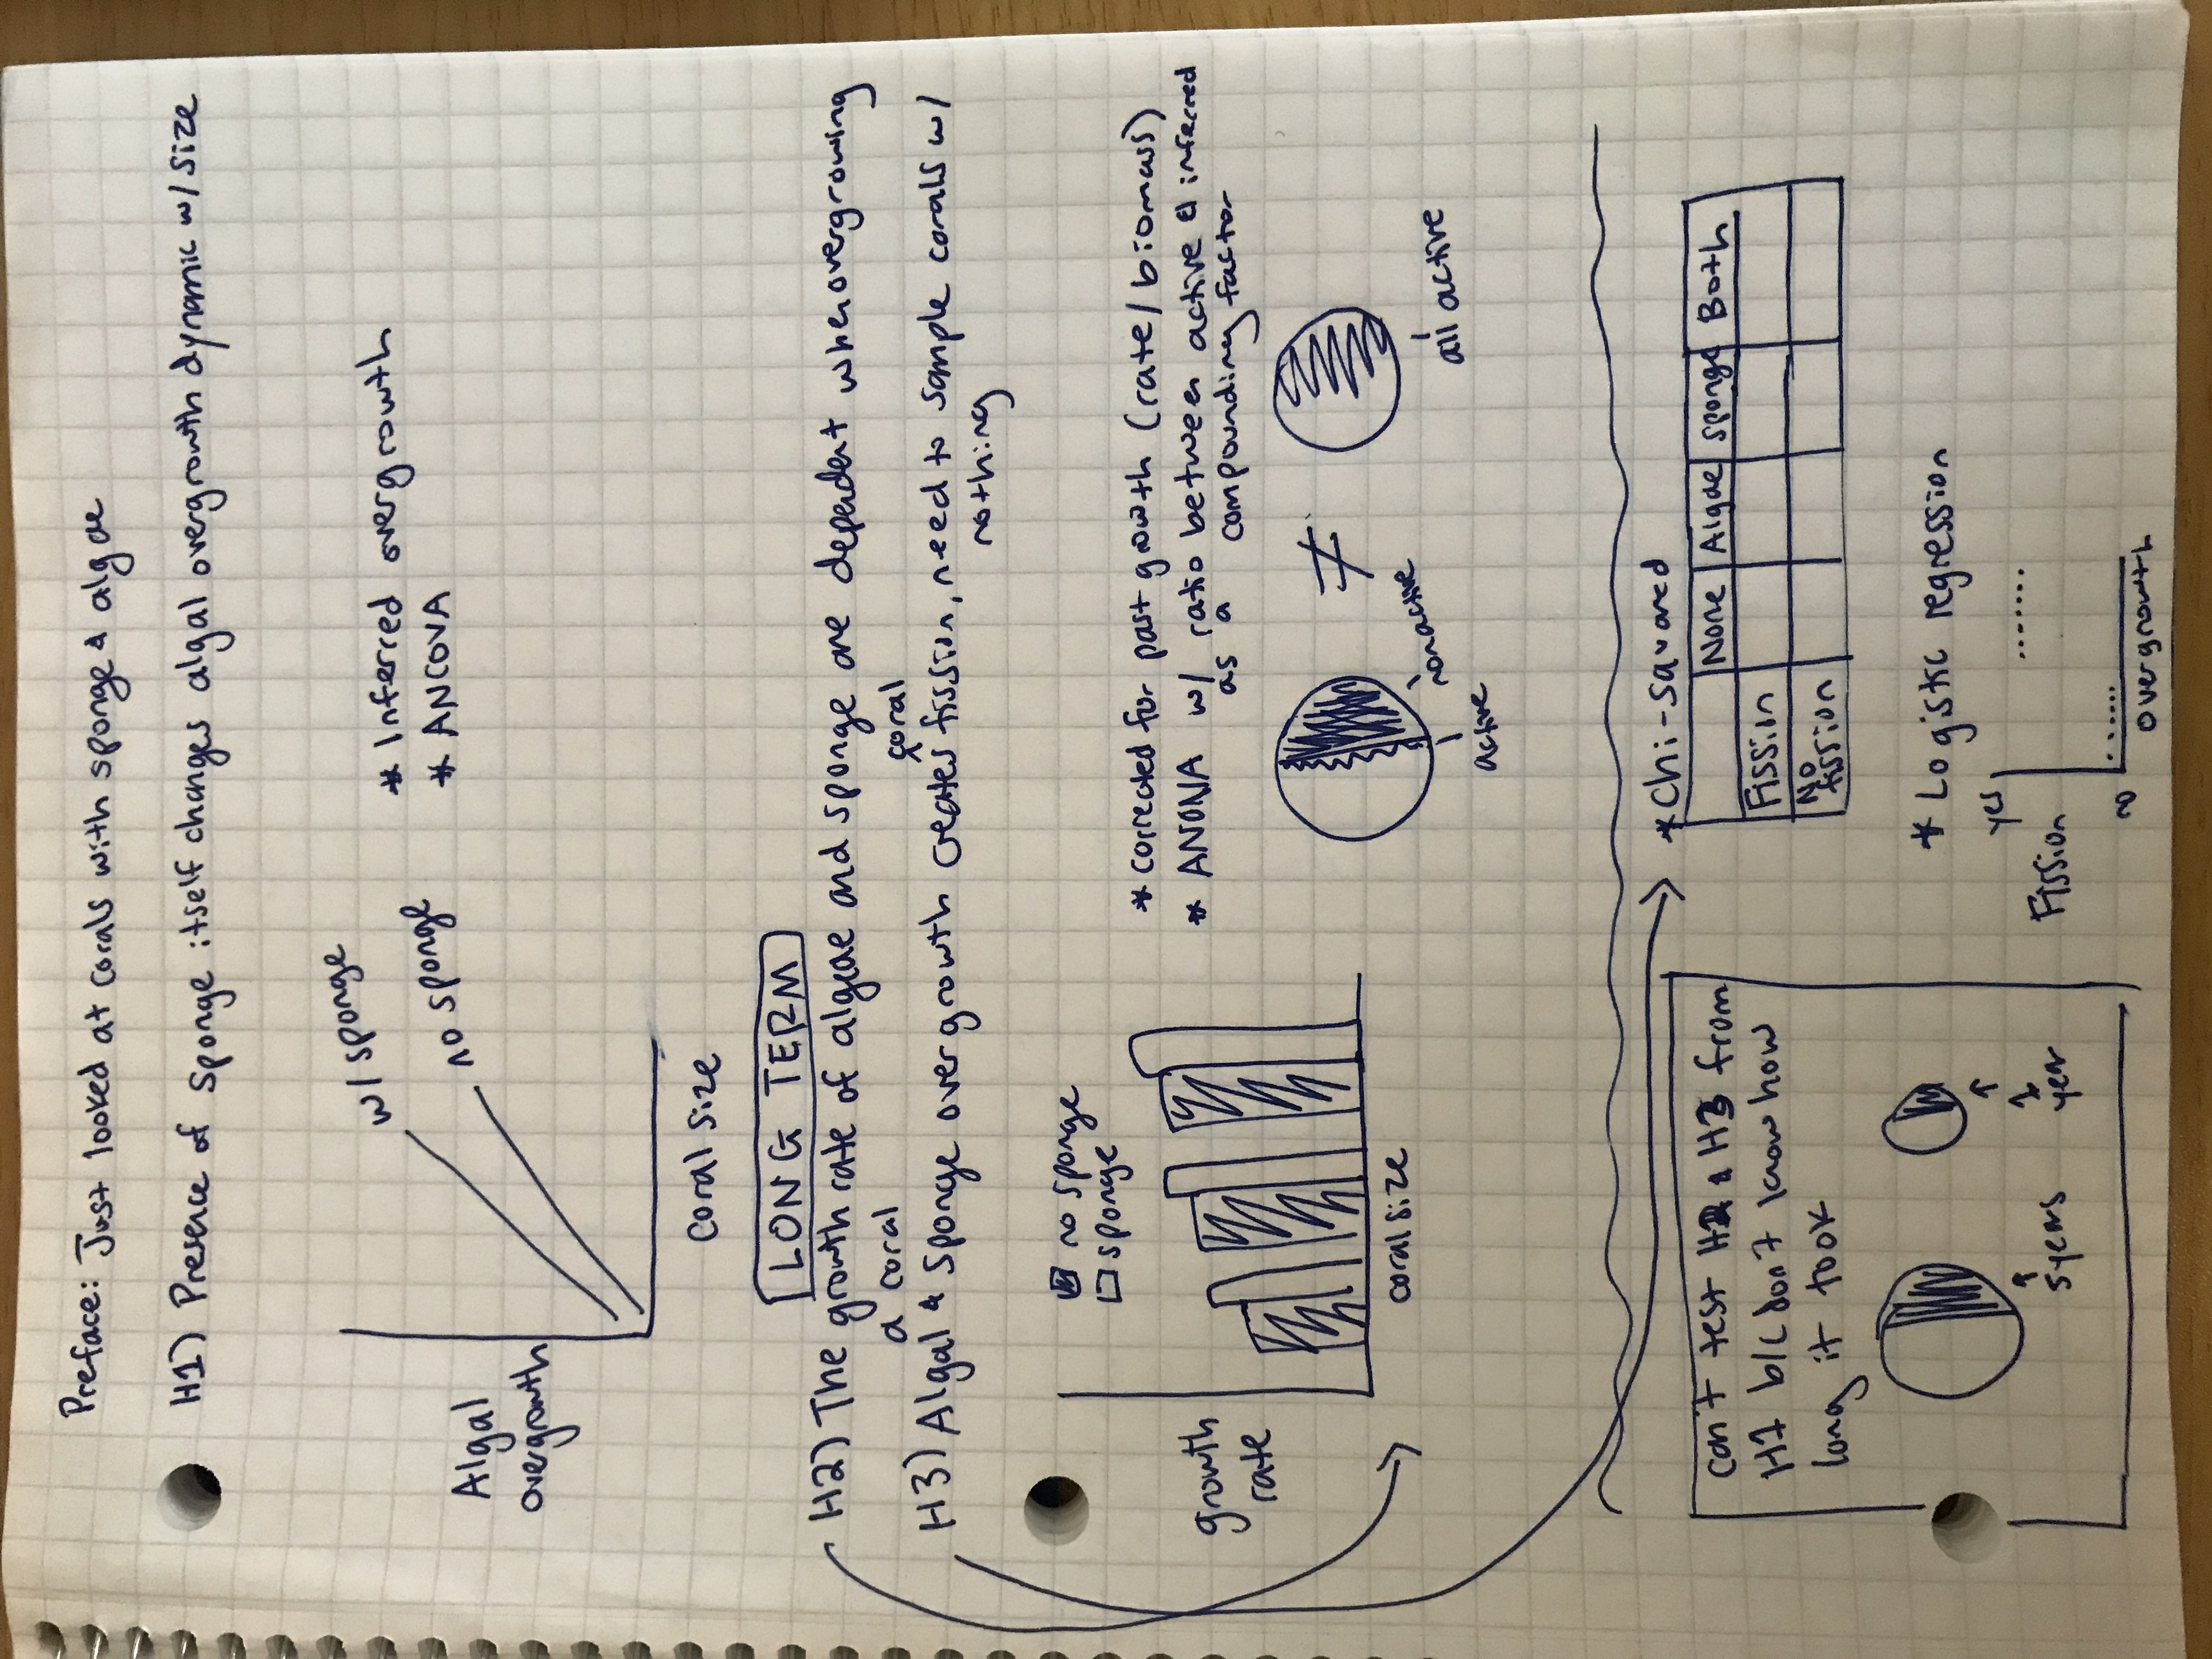 Preface: Just looked at corals with sponge & algae
H1) Presence of sponge itself changes algal overgrowth dynamic w/ size
w/ sponge
no sponge
* Inferred overgrowth
* ANCOVA
Algal
overgrowth
coral size
LONG TERM
H2) The growth rate of algeae and sponge are dependent when overgrowing
a coral
coral
H3) Algal & sponge overgrowth creates fission, need to sample corals w/
nothing
no sponge
sponge
growth
rate
coral size
* corrected for past growth (rate/biomass)
* ANONA w/ ratio between active & inferred
as a compounding factor
≠
nonactive
active
all active
can't test H2 & H3 from
H1 b/c don't know how
long it took
5 years
1
year
* Chi-squared
None Algae sponge Both
Fission
No
fission
* Logistic regression
yes
Fission
no
overgrowth